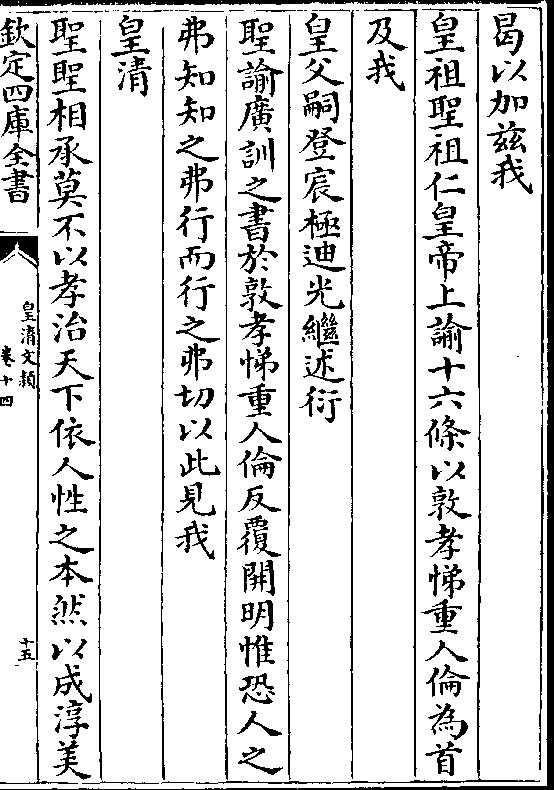 曷以加兹我
皇祖聖祖仁皇帝上諭十六條以敦孝悌重人倫為首
及我
皇父嗣登宸極迪光繼述衍
聖諭廣訓之書於敦孝悌重人倫反覆開明惟恐人之
弗知知之弗行而行之弗切以此見我
皇清
聖聖相承莫不以孝治天下依人性之本然以成淳美
欽定四庫全書
皇清文穎
卷十四
十五